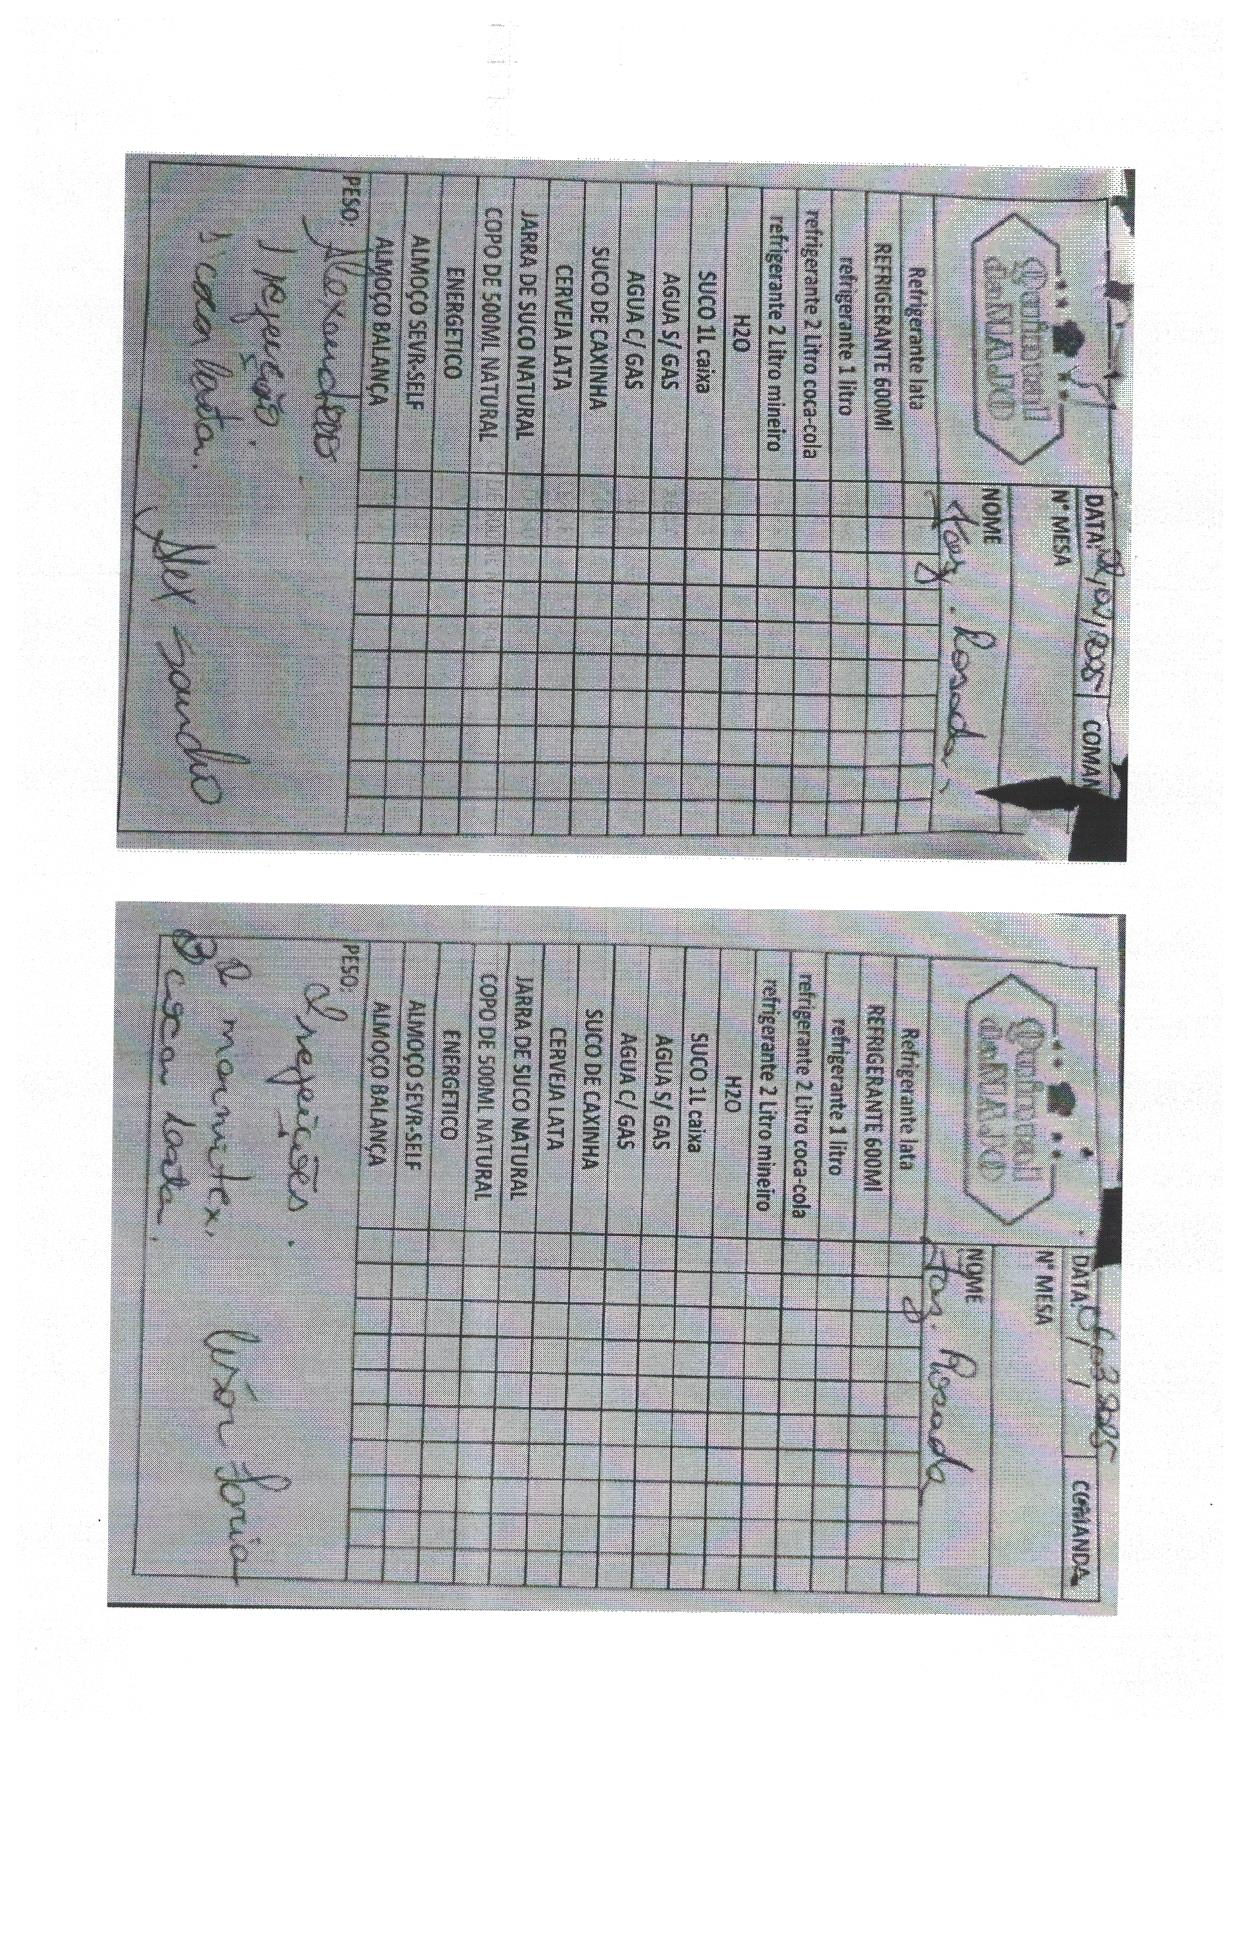 Quintal
da MAJO
DATA: 2025
COMAN
N° MESA
NOME
Faz. Rosada
Refrigerante lata
REFRIGERANTE 600Ml
refrigerante 1 litro
refrigerante 2 Litro coca-cola
refrigerante 2 Litro mineiro
H2O
SUCO 1L caixa
AGUA S/ GAS
AGUA C/ GAS
SUCO DE CAXINHA
CERVEJA LATA
JARRA DE SUCO NATURAL
COPO DE 500ML NATURAL
ENERGETICO
ALMOÇO SEVR-SELF
ALMOÇO BALANÇA
PESO:
Alexandro
1 refeição.
1 coca lata.
Alex Sandro
Quintal
da MAJO
DATA: 06/03/2025
COMANDA
N° MESA
NOME
Faz. Rosada
Refrigerante lata
REFRIGERANTE 600Ml
refrigerante 1 litro
refrigerante 2 Litro coca-cola
refrigerante 2 Litro mineiro
H2O
SUCO 1L caixa
AGUA S/ GAS
AGUA C/ GAS
SUCO DE CAXINHA
CERVEJA LATA
JARRA DE SUCO NATURAL
COPO DE 500ML NATURAL
ENERGETICO
ALMOÇO SEVR-SELF
ALMOÇO BALANÇA
PESO:
2 refeições.
2 marmitex.
coca lata.